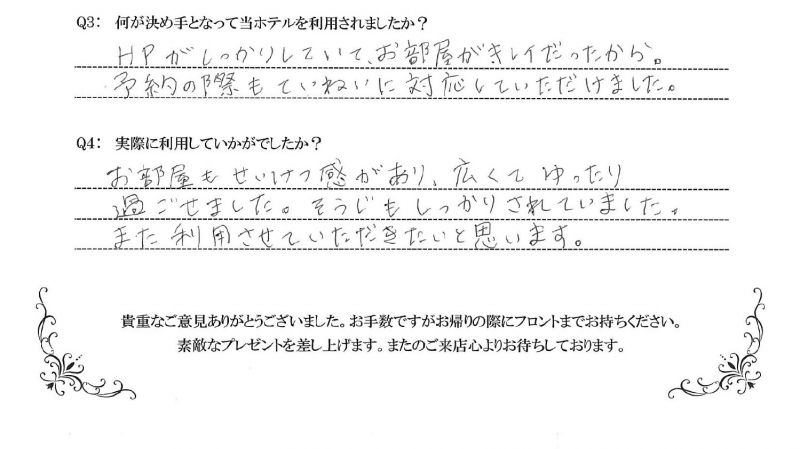 Q3: 何が決め手となって当ホテルを利用されましたか？
HPがしっかりしていて、お部屋がキレイだったから。
予約の際もていねいに対応していただけました。
Q4: 実際に利用していかがでしたか？
お部屋もせいけつ感があり、広くてゆったり
過ごせました。そうじもしっかりされていました。
また利用させていただきたいと思います。
貴重なご意見ありがとうございました。お手数ですがお帰りの際にフロントまでお持ちください。
素敵なプレゼントを差し上げます。またのご来店心よりお待ちしております。